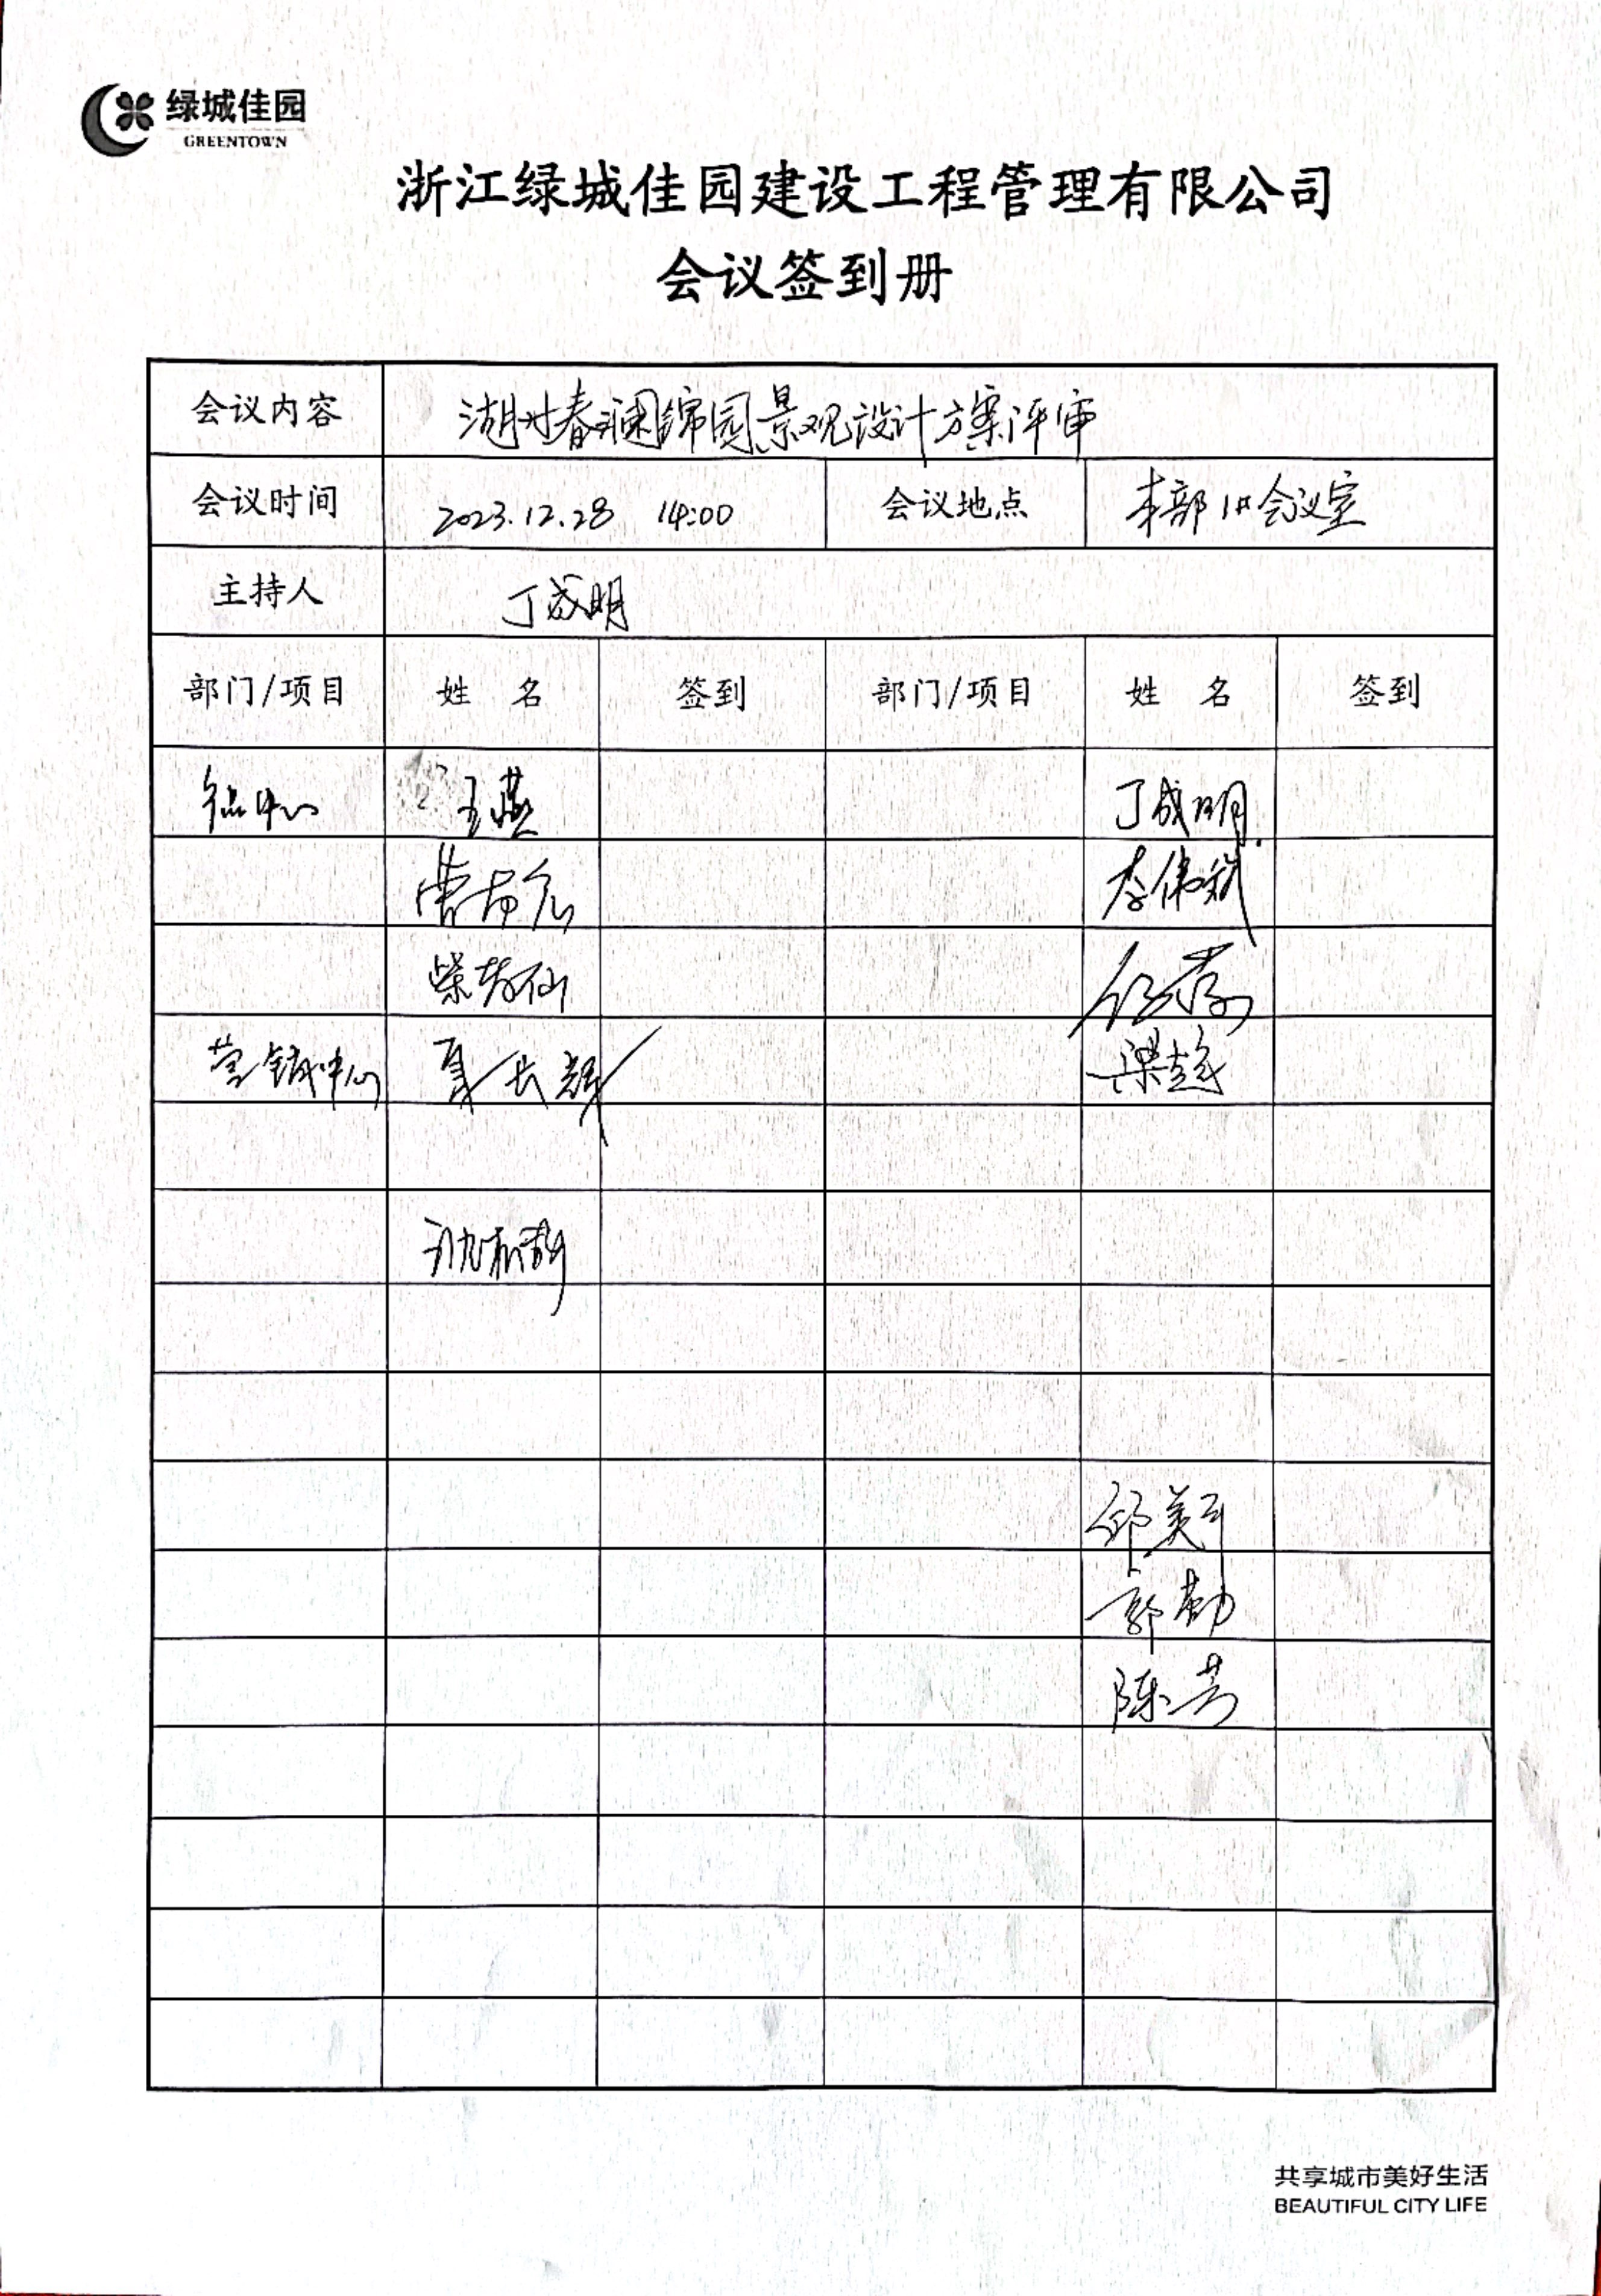 绿城佳园
GREENTOWN
浙江绿城佳园建设工程管理有限公司
会议签到册
会议内容 湖州春澜锦园景观设计方案评审
会议时间 2023.12.28 14:00 会议地点 本部1#会议室
主持人 丁成明
部门/项目 姓 名 签到 部门/项目 姓 名 签到
中心 王燕 丁成明
李伟斌
柴
营销中心 夏长辉 梁
沈
邱美
郭勤
陈芳
共享城市美好生活
BEAUTIFUL CITY LIFE